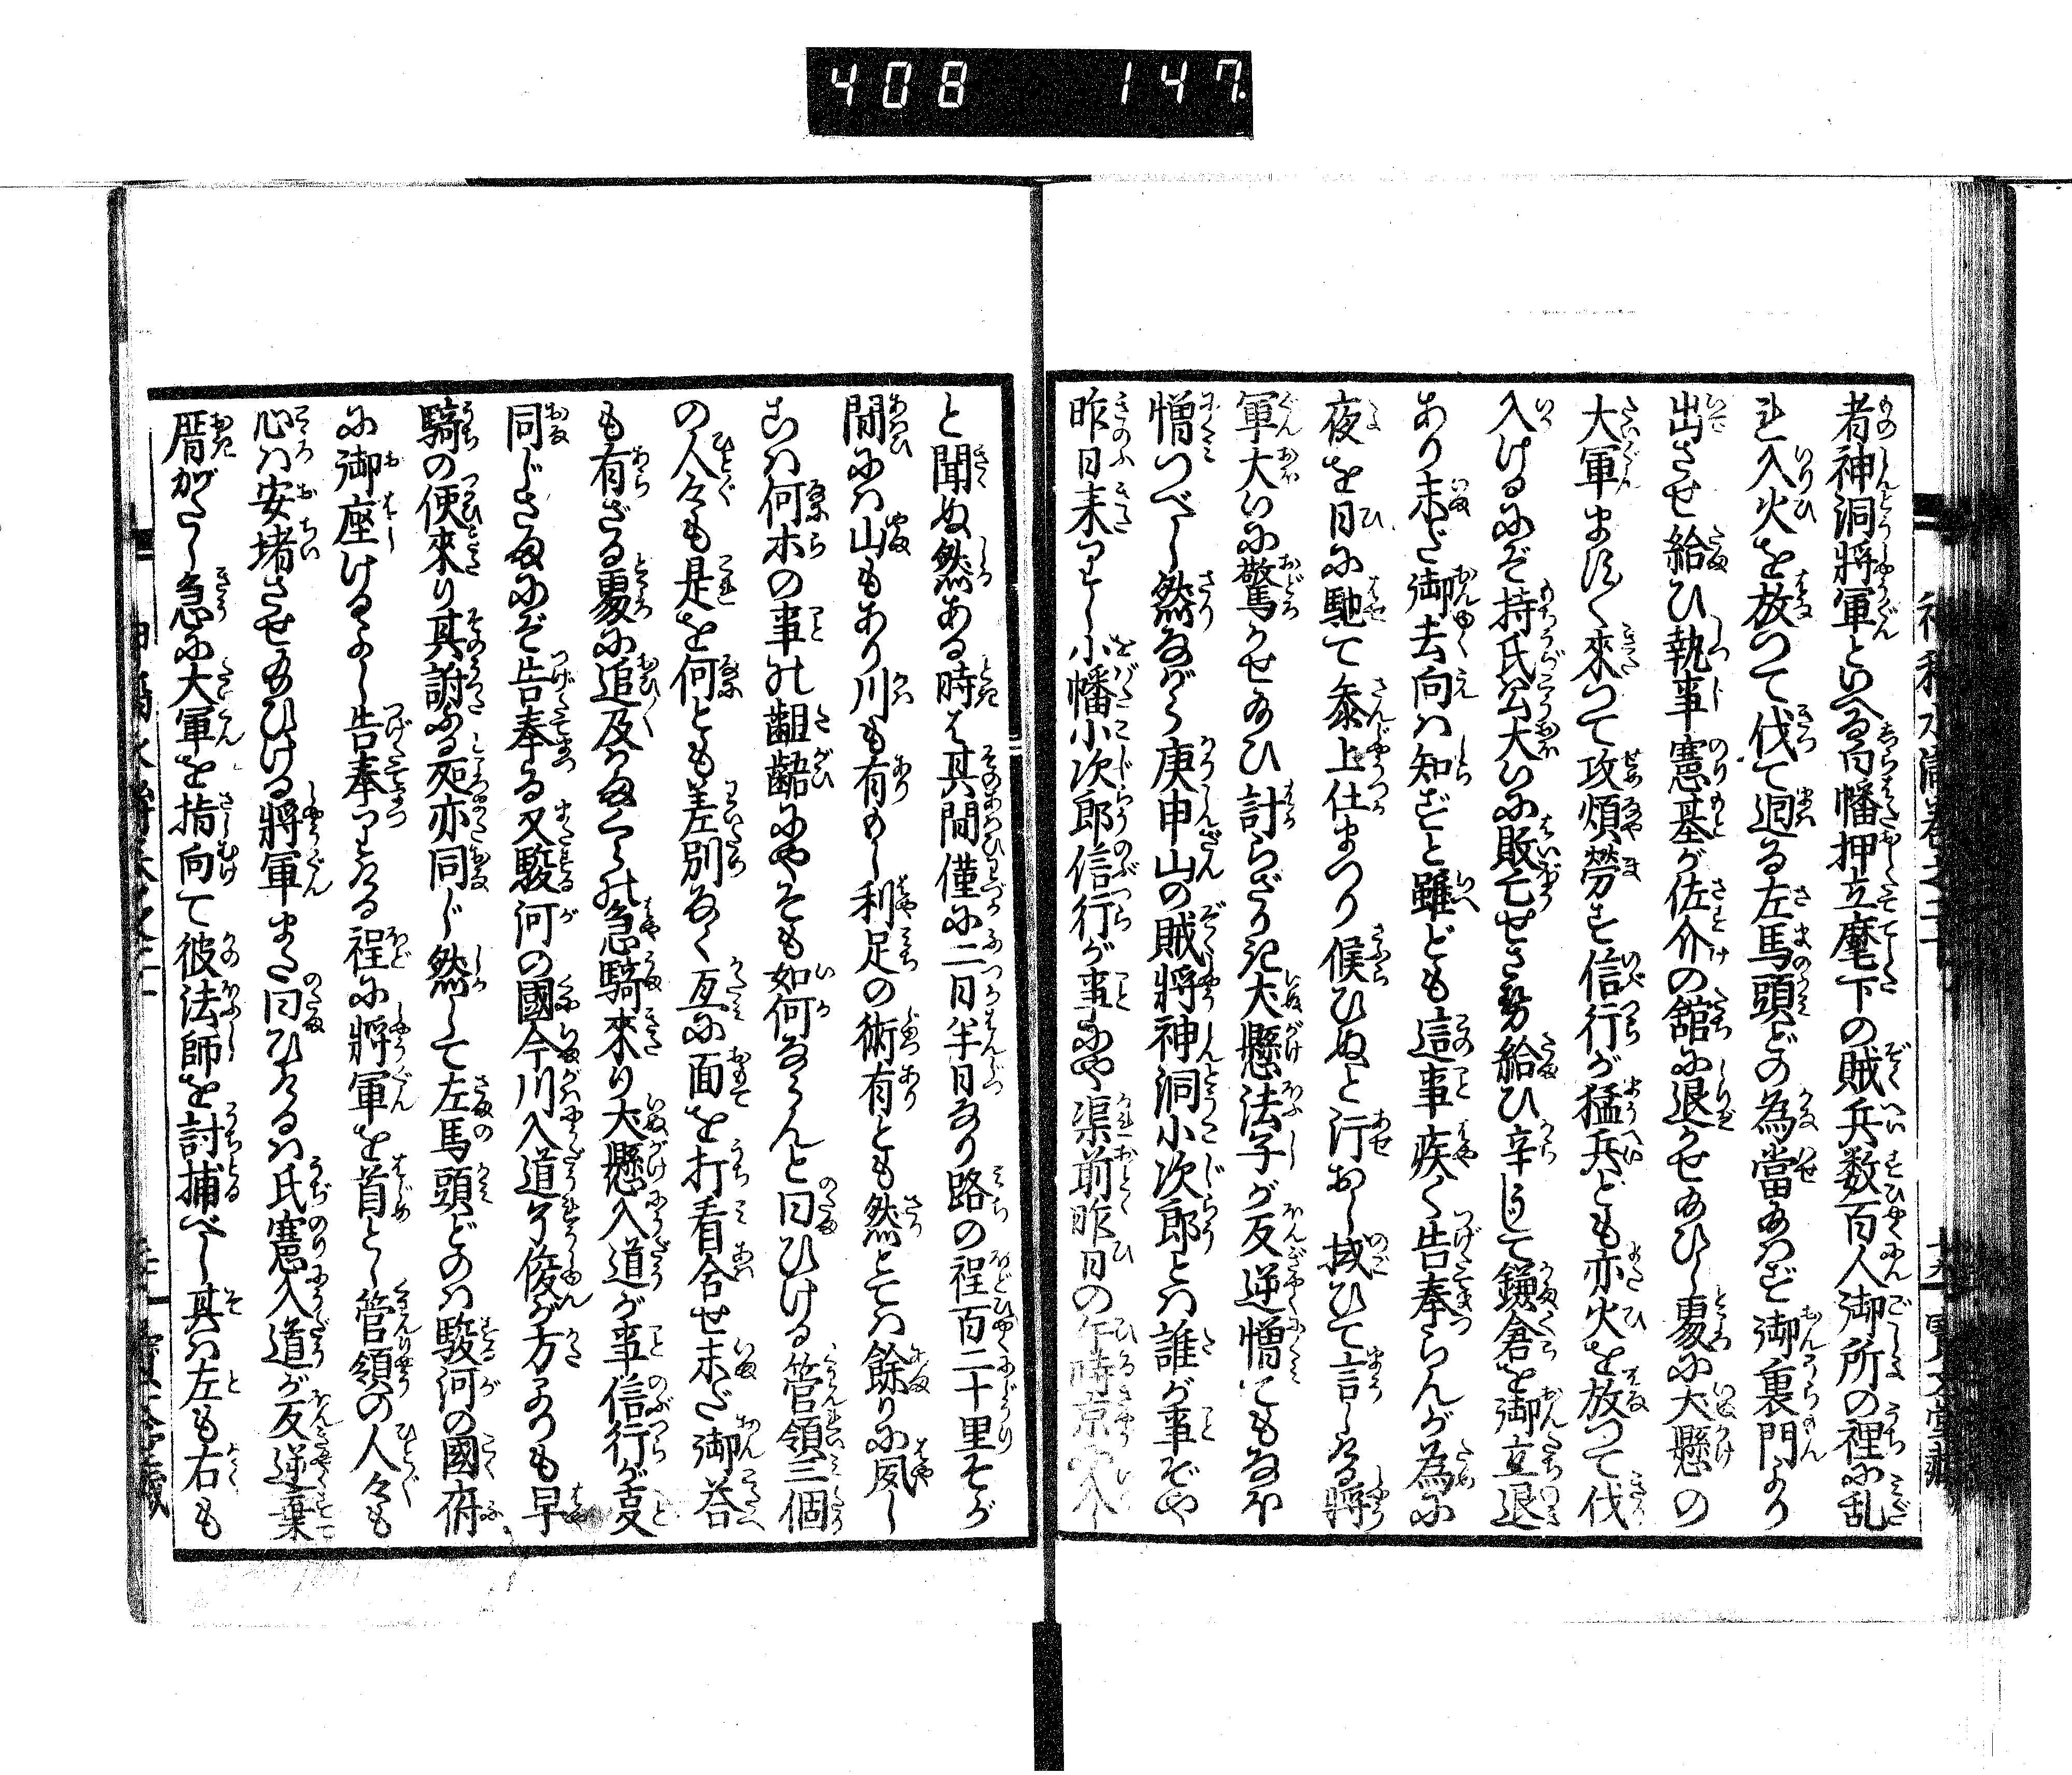 408 147
者神洞將軍といへる白幡押立麾下の賊兵数百人御所の裡に乱
れ入火を放つて伐て𢌞る左馬頭どの為當あはず御裏門より
出させ給ひ執事憲基が佐介の舘に退かせあひし處に犬懸の
大軍ますます來つて攻煩勞す信行が猛兵ども亦火を放つて伐
入けるにぞ持氏公大いに敗亡せさ勢給ひ辛じて鎌倉を御立退
あり未だ御去向は知ずと雖ども這事疾く告奉らんが為に
夜を日に馳て参上仕まつり候ひぬと汗おし拭ひて言しける將
軍大いに驚かせ給ひ計らざりき犬懸法子が反逆憎にもなほ
憎つべし然ながら庚申山の賊將神洞小次郎とは誰が事ぞや
昨日来りし小幡小次郎信行が事にや渠前昨日の午時京に入
と聞ぬ然ある時は其間僅に二日半日なり路の程百二十里そが
間には山もあり川も有めり利足の術有とも然とては餘りに夙し
こは何等の事の齟齬にやそも如何ならんと曰ひける管領三個
の人々も是を何とも差別なく互に面を打看合せ未だ御荅
も有ざる處に追及かまくらの急騎來り犬懸入道が事信行が叓
同じさまにぞ告奉る又駿河の國今川入道了俊が方よりも早
騎の便來り其訴ふる処亦同じ然して左馬頭どのは駿河の國府
に御座けるよし告奉つりける程に將軍を首とし管領の人々も
心は安堵させ給ひける將軍また曰ひけるは氏憲入道が反逆棄
厝がたし急に大軍を指向て彼法師を討捕べし其は左も右も